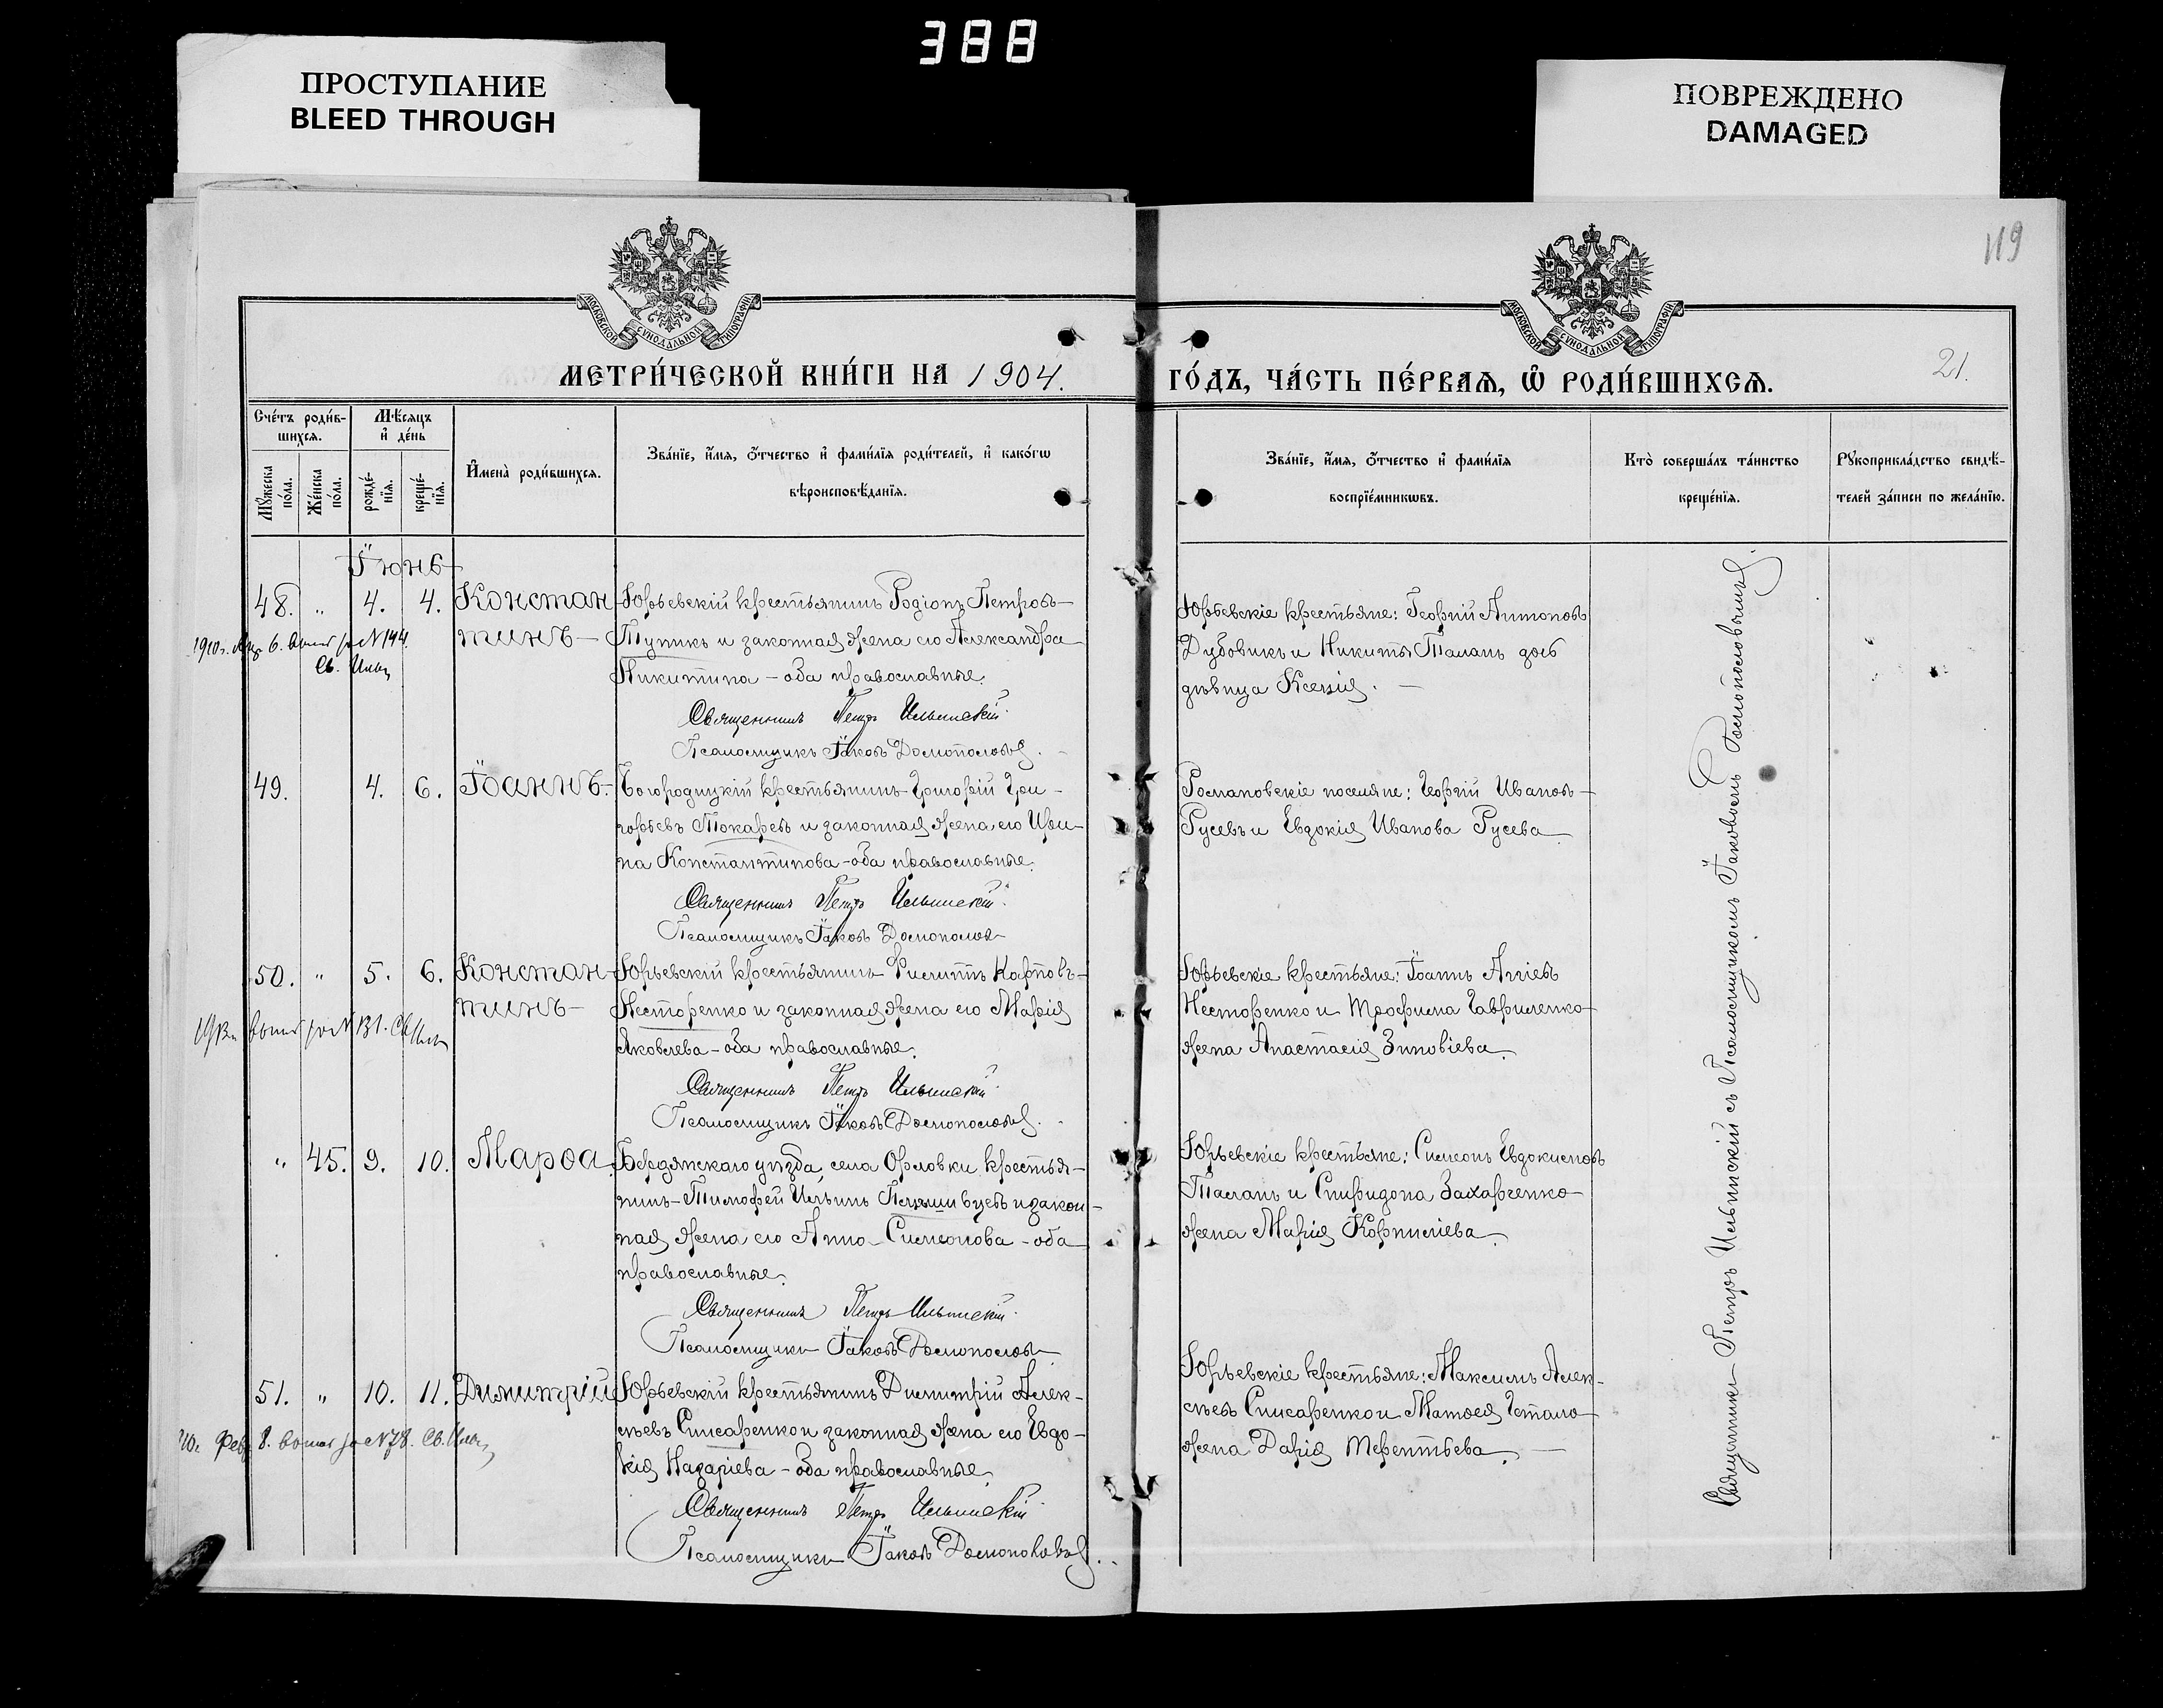 388
ПРОСТУПАНИЕ
BLEED THROUGH
ПОВРЕЖДЕНО
DAMAGED
119
МОСКОВСКОЙ СУНОДАЛЬНОЙ ТИПОГРАФІИ
МОСКОВСКОЙ СУНОДАЛЬНОЙ ТИПОГРАФІИ
МЕТРИ́ЧЕСКОЙ КНИ́ГИ НА 1904.
ГО́ДЪ, ЧА́СТЬ ПЕ́РВАѦ, Ѡ҆ РОДИ́ВШИХСѦ.
21.
Сче́тъ роди́в-
шихсѧ.
Мꙋ́жеска
по́ла.
Же́нска
по́ла.
Мѣ́сѧцъ
и҆ де́нь
рожде́-
нїѧ.
креще́-
нїѧ.
И҆мена̀ роди́вшихсѧ.
Зва́нїе, и҆́мѧ, ѻ҆́тчество и҆ фами́лїѧ роди́телей, и҆ како́гѡ
вѣроисповѣ́данїѧ.
Зва́нїе, и҆́мѧ, ѻ҆́тчество и҆ фами́лїѧ
воспрїе́мникѡвъ.
Кто̀ соверша́лъ та́инство
креще́нїѧ.
Рꙋкоприкла́дство свидѣ́-
телей за́писи по жела́нїю.
Іюнь
48. " 4. 4. Констан
тинъ
Юрьевскій крестьянинъ Родіонъ Петровъ
Тутикъ и законная жена его Александра
Никитина - оба православные.
Священникъ Петръ Ильинскій
Псаломщикъ Іаковъ
Юрьевскіе крестьяне: Георгій Антоновъ
Дубовикъ и Никиты Таланъ дочь
дѣвица Ксенія. —
1910 г. 6. № 144.
Св.
49. 4. 6. Іоаннъ.
Богородицкій крестьянинъ Григорій Гри-
горьевъ Токаревъ и законная жена его Ири-
на Константинова - оба православные.
Священникъ Петръ Ильинскій
Псаломщикъ Іаковъ
Романовскіе поселяне: Георгій Ивановъ
Русевъ и Евдокія Иванова Русева
50. " 5. 6. Констан
тинъ
Юрьевскій крестьянинъ Филиппъ Карповъ
Несторенко и законная жена его Марія
Яковлева - оба православные.
Священникъ Петръ Ильинскій
Псаломщикъ Іаковъ
Юрьевскіе крестьяне: Іоаннъ
Несторенко и Трофима Гавриленко
жена Анастасія Зиновіева.
№ 131.
" 45. 9. 10. Марѳа.
Бердянскаго уѣзда, села Орловки крестья-
нинъ Тимофей Ильинъ и закон-
ная жена его Анна Симеонова - оба
православные.
Священникъ Петръ Ильинскій
Псаломщикъ Іаковъ
Юрьевскіе крестьяне: Симеонъ Евдокимовъ
Таланъ и Спиридона Захарченко
жена Марія Корниліева.
51. " 10. 11. Димитрій
Юрьевскій крестьянинъ Димитрій Алек-
сѣевъ Слисаренко и законная жена его Евдо-
кія Назаріева - оба православные.
Священникъ Петръ Ильинскій
Псаломщикъ Іаковъ
Юрьевскіе крестьяне: Максимъ Алек-
сѣевъ Слисаренко и Матѳея
жена Дарія Терентьева. —
Фев. 8. № 78. Св.
Священникъ Петръ Ильинскій съ Псаломщикомъ Іаковомъ